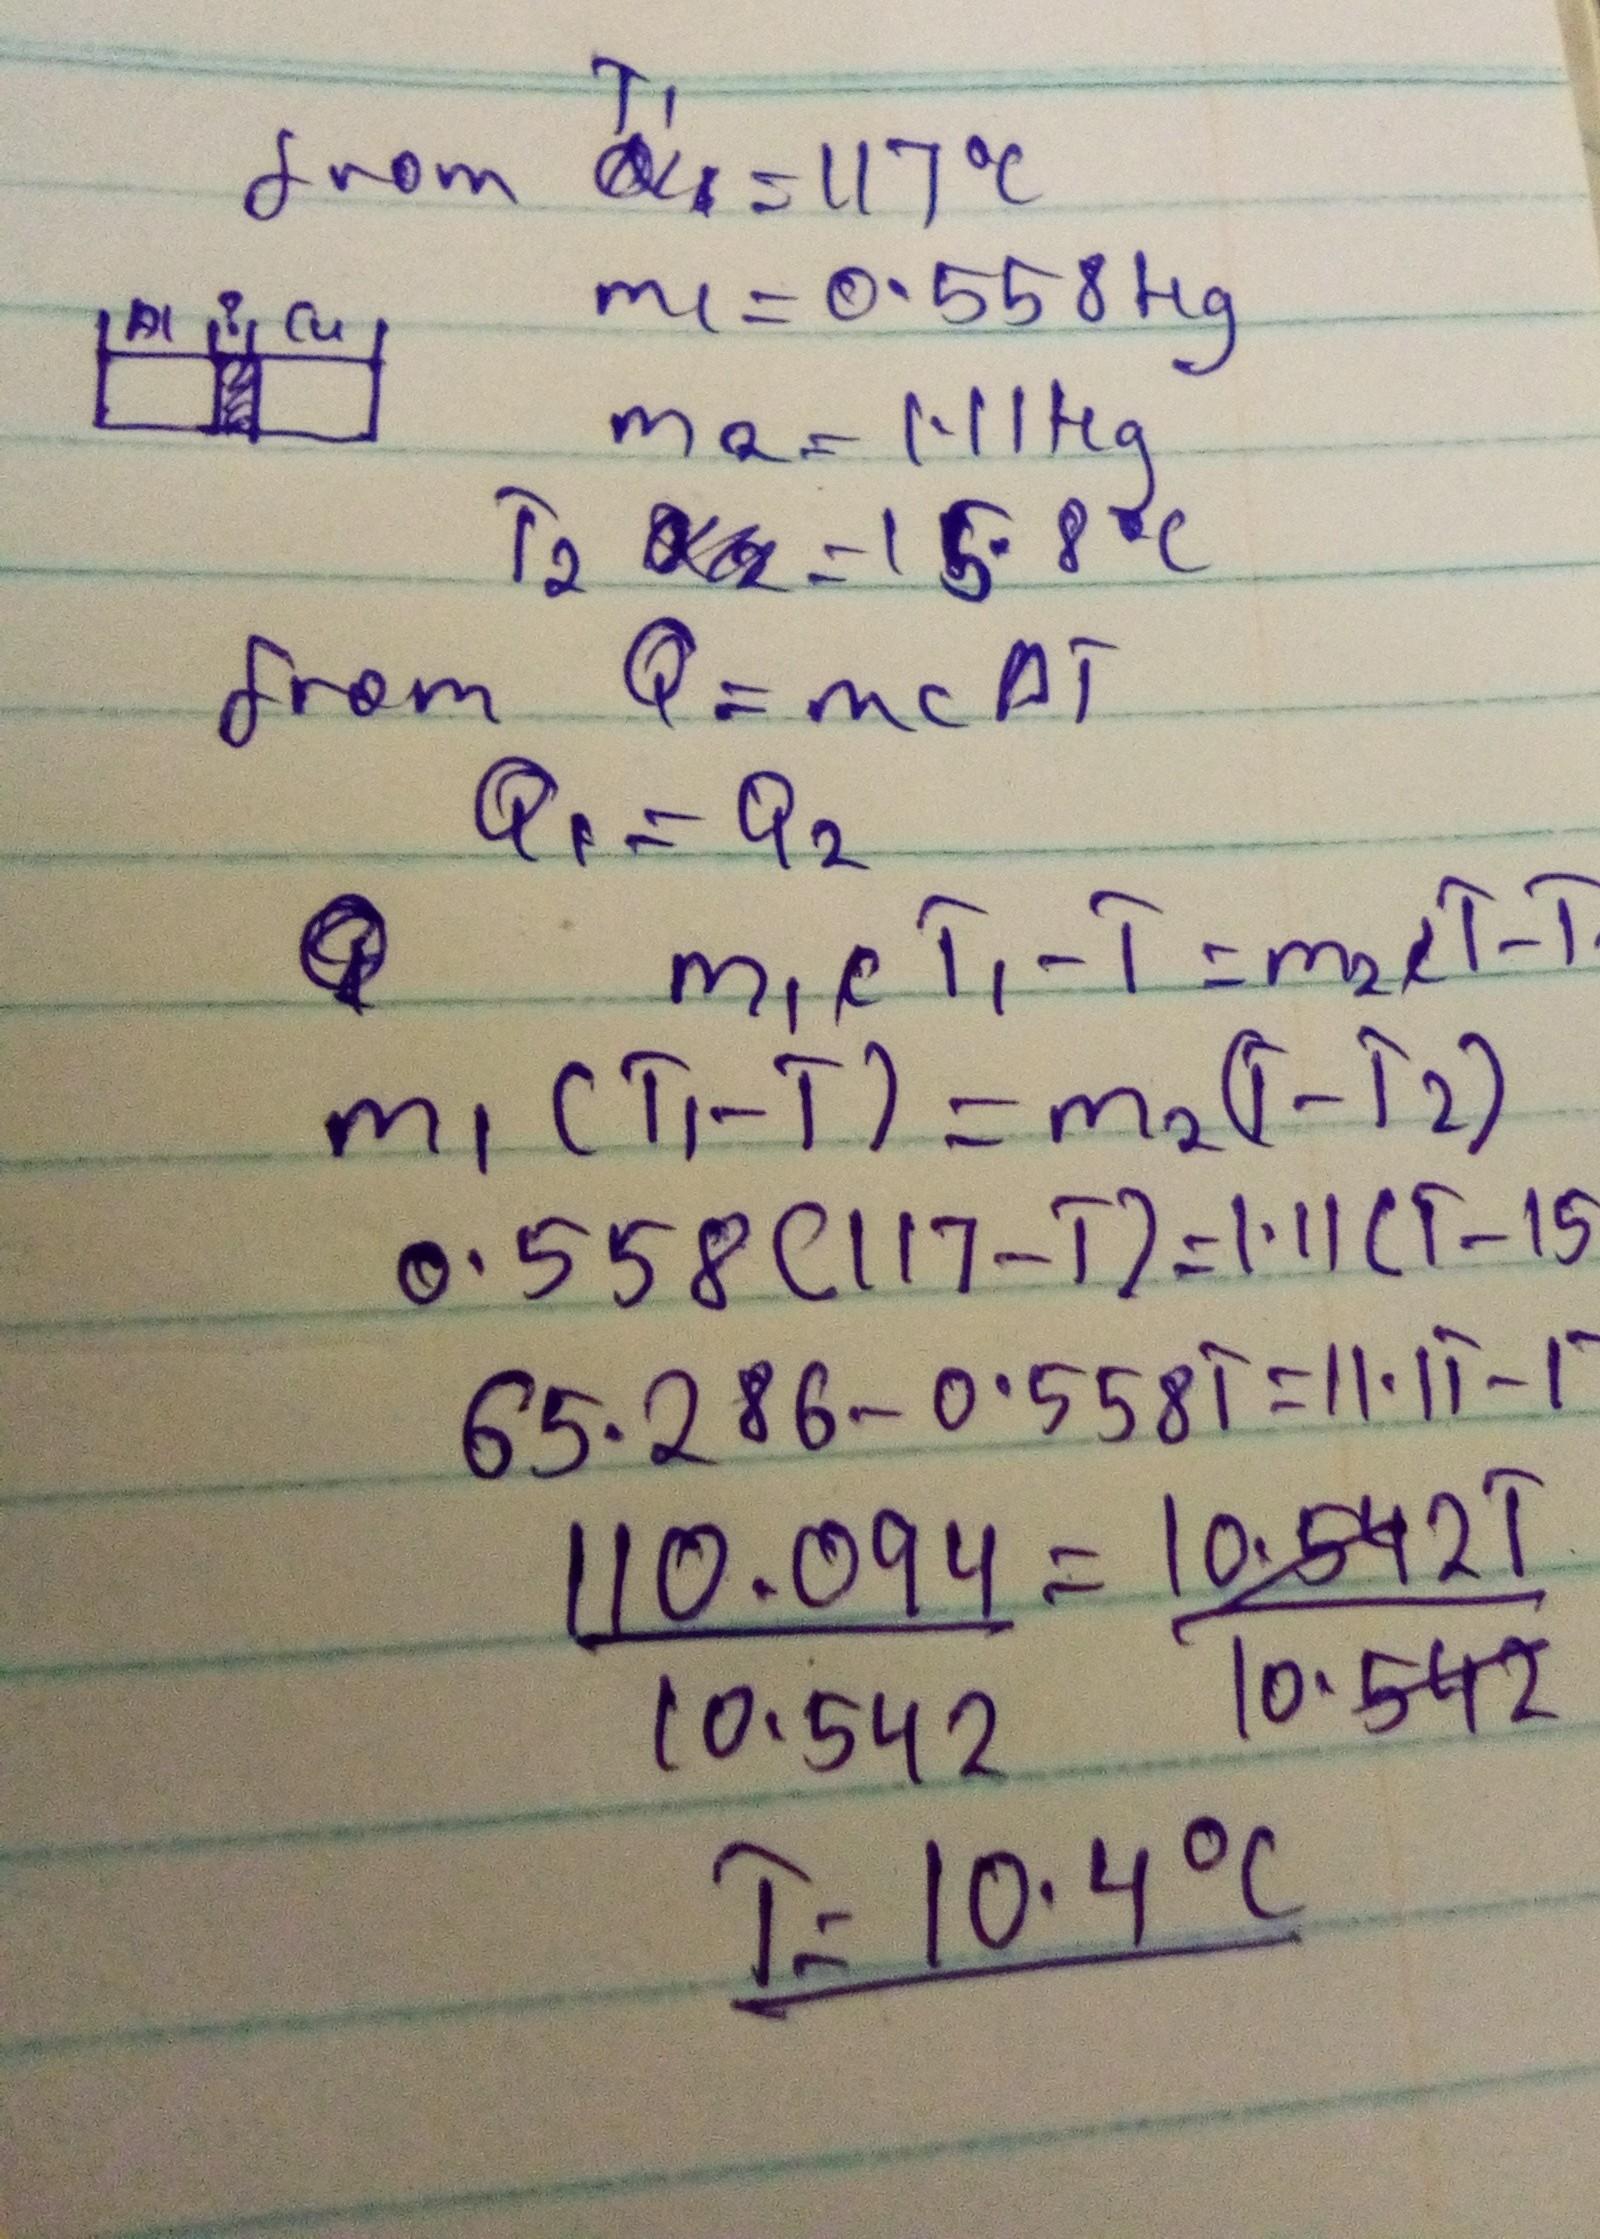 T1
from = 117°C
m1 = 0.558Kg
Al Cu
m2 = 1.11Kg
T2 = 15.8°C
from Q = mcΔT
Q1 = Q2
Q m1cT1-T = m2cT-T
m1(T1-T) = m2(T-T2)
0.558(117-T) = 1.11(T-15
65.286-0.558T = 11.1T-1
110.094 = 10.542T
10.542 10.542
T = 10.4°C